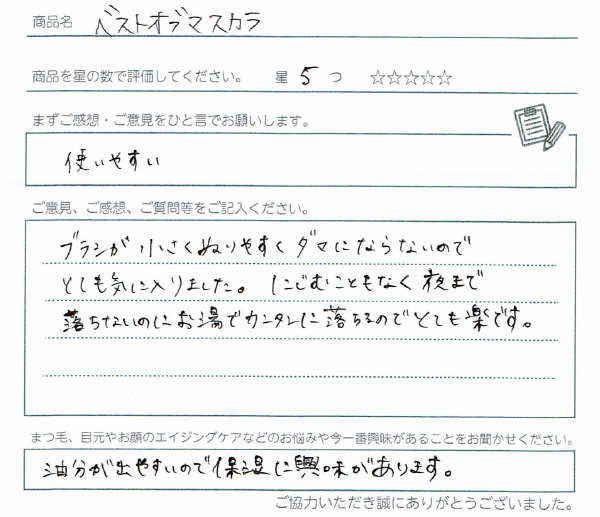 商品名 ベストオブマスカラ
商品を星の数で評価してください。 星 5 つ ☆☆☆☆☆
まずご感想・ご意見をひと言でお願いします。
使いやすい
ご意見、ご感想、ご質問等をご記入ください。
ブラシが小さくぬりやすくダマにならないので
とても気に入りました。にじむこともなく夜まで
落ちないのにお湯でカンタンに落ちるのでとても楽です。
まつ毛、目元やお顔のエイジングケアなどのお悩みや今一番興味があることをお聞かせください。
油分が出やすいので保湿に興味があります。
ご協力いただき誠にありがとうございました。